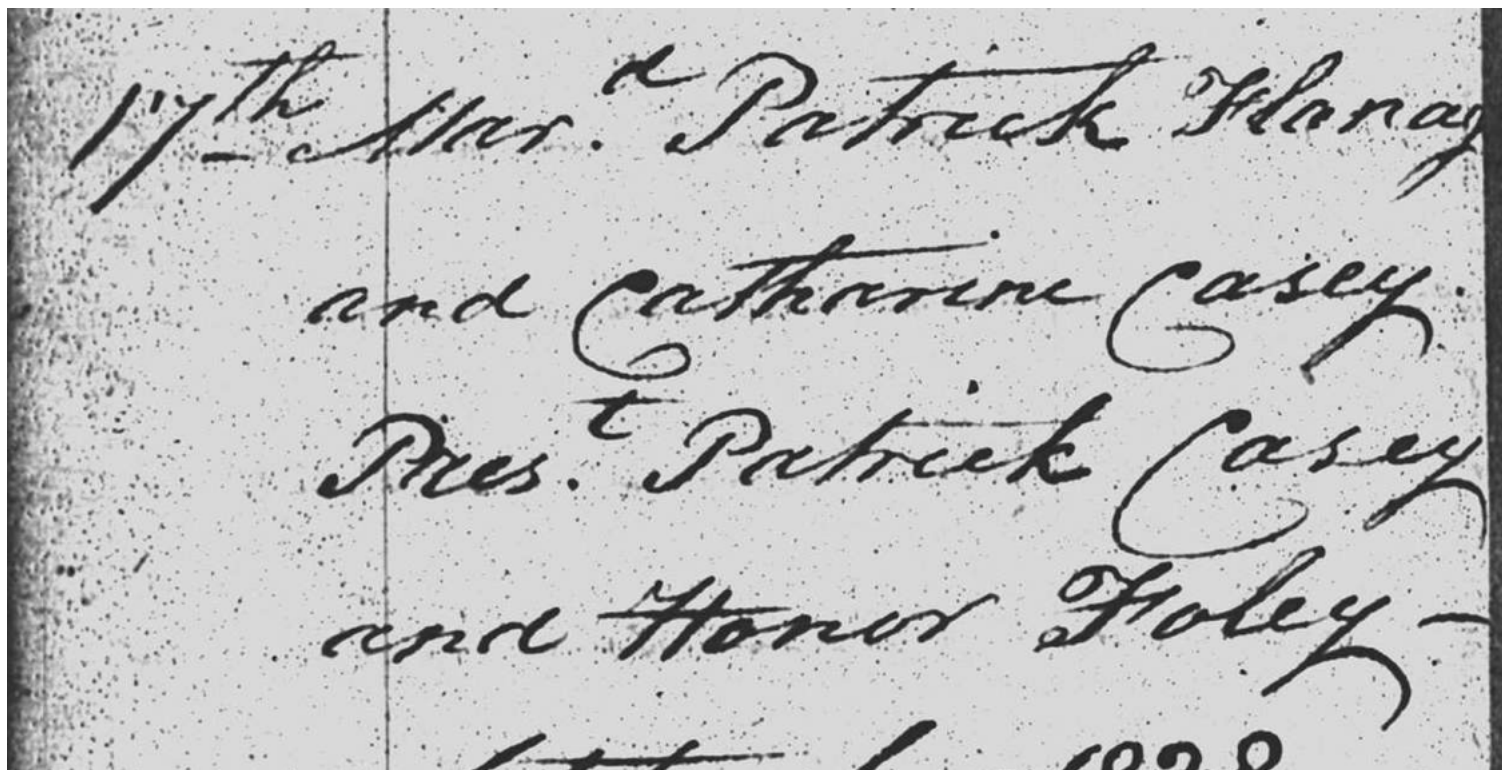 17th Mar.d Patrick Flanag
and Catharine Casey.
Pres.t Patrick Casey
and Honor Foley -
1828